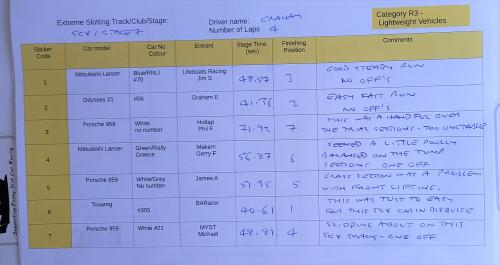 Extreme Slotting Track/Club/Stage: Driver name: GRAHAM
SCX / STAGE 7 Number of Laps 4
Category R3 -
Lightweight Vehicles
Sticker Code Car model Car No Colour Entrant Stage Time (sec) Finishing Position Comments
1 Mitsubishi Lancer Blue/RNLI #70 Lifeboats Racing Jim S 48.57 3 GOOD STEADY RUN NO OFF'S
2 Odyssey 21 #06 Graham E 41.56 2 EASY FAST RUN NO OFF'S
3 Porsche 959 White no number Hollap Phil F 71.92 7 THIS WAS A HANDFUL OVER THE TRIAL SECTIONS - TOO UNSTABLE
4 Mitsubishi Lancer Green/Rally Greece Makem Gerry F 56.87 6 SEEMED A LITTLE POORLY BALANCED ON THE JUMP SECTIONS ONE OFF
5 Porsche 959 White/Grey No number James A 51.55 5 GRASS SECTION WAS A PROBLEM WITH FRONT LIFTING.
6 Touareg #305 BARacer 40.61 1 THIS WAS JUST TO EASY FOR THIS SCX CAR IN DISGUISE
7 Porsche 959 White #21 MYST Michael 48.81 4 SLIDDING ABOUT ON THIS SCX TRACK - ONE OFF.